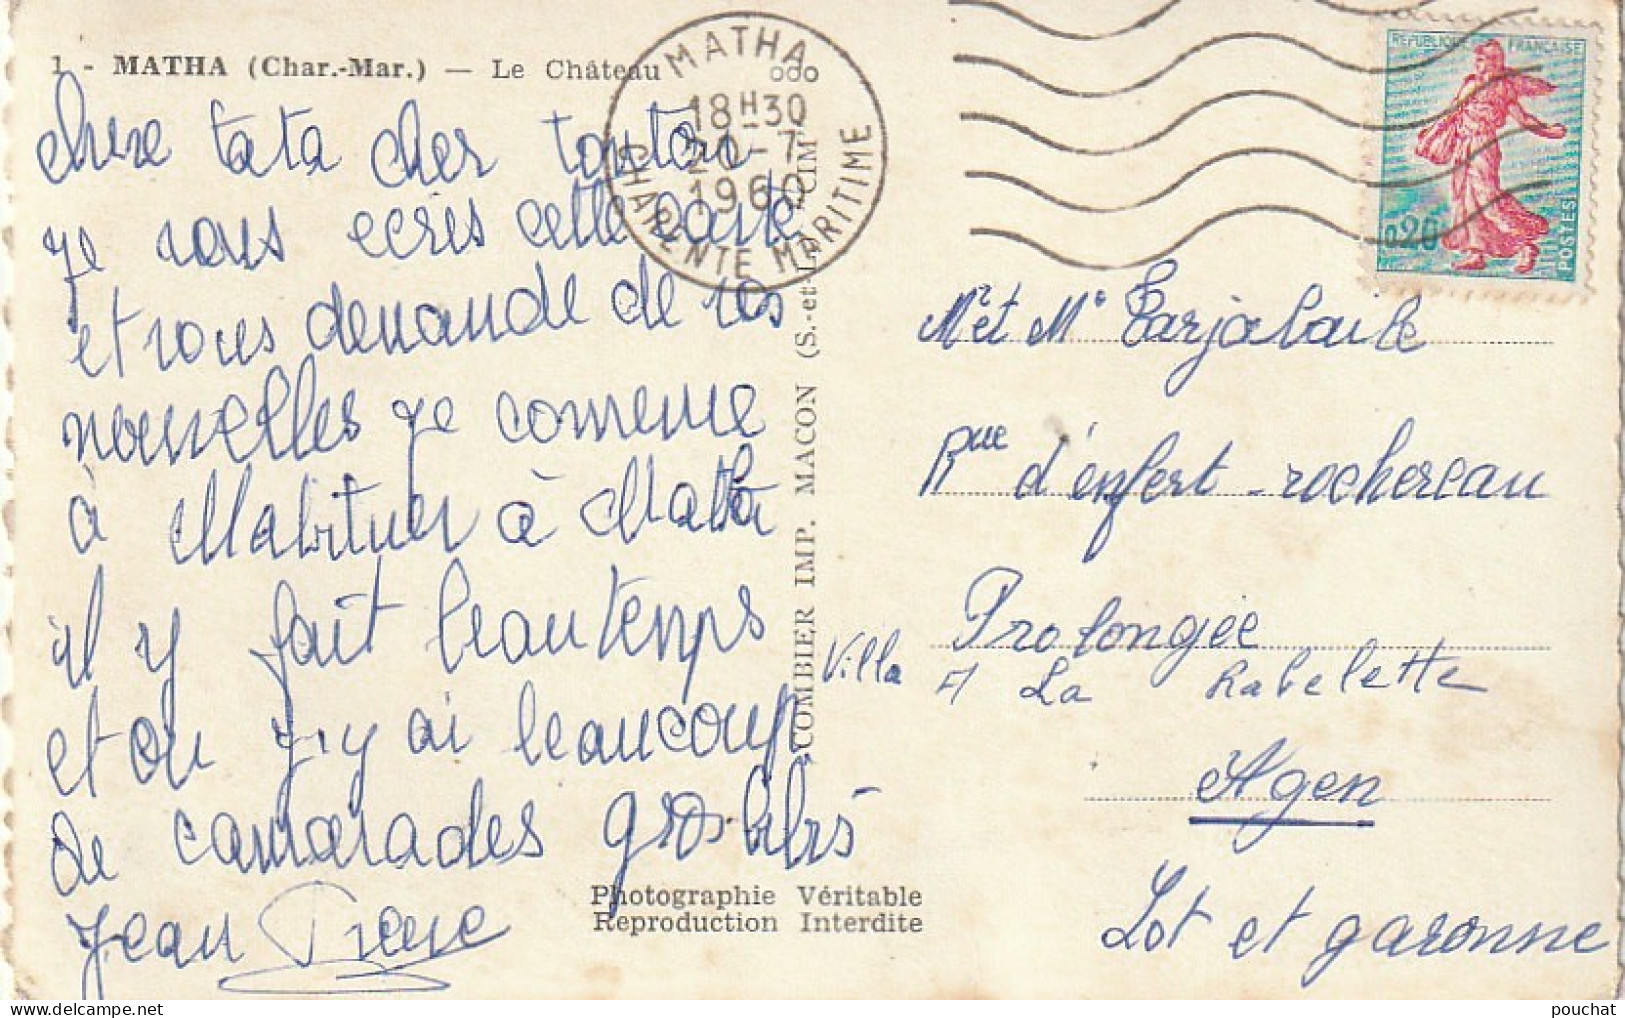 1 - MATHA (Char.-Mar.) — Le Château
chere tata cher tonton
je vous ecris cette carte
et vous demande de vos
nouvelles je comence
à m'abituer à Matha
il y fait beau temps
et on j'y ai beaucoup
de camarades gros bibis
Jean Piere
Photographie Véritable
Reproduction Interdite
COMBIER IMP. MACON (S.-et-L.) CIM
MATHA
18H30
20-7
1960
CHARENTE MARITIME
REPUBLIQUE FRANÇAISE
0,20
POSTES
Mr et Me Tarjabaile
Rue d'enfert-rochereau
Prolongée
Villa La Rabelette
Agen
Lot et garonne
pouchat